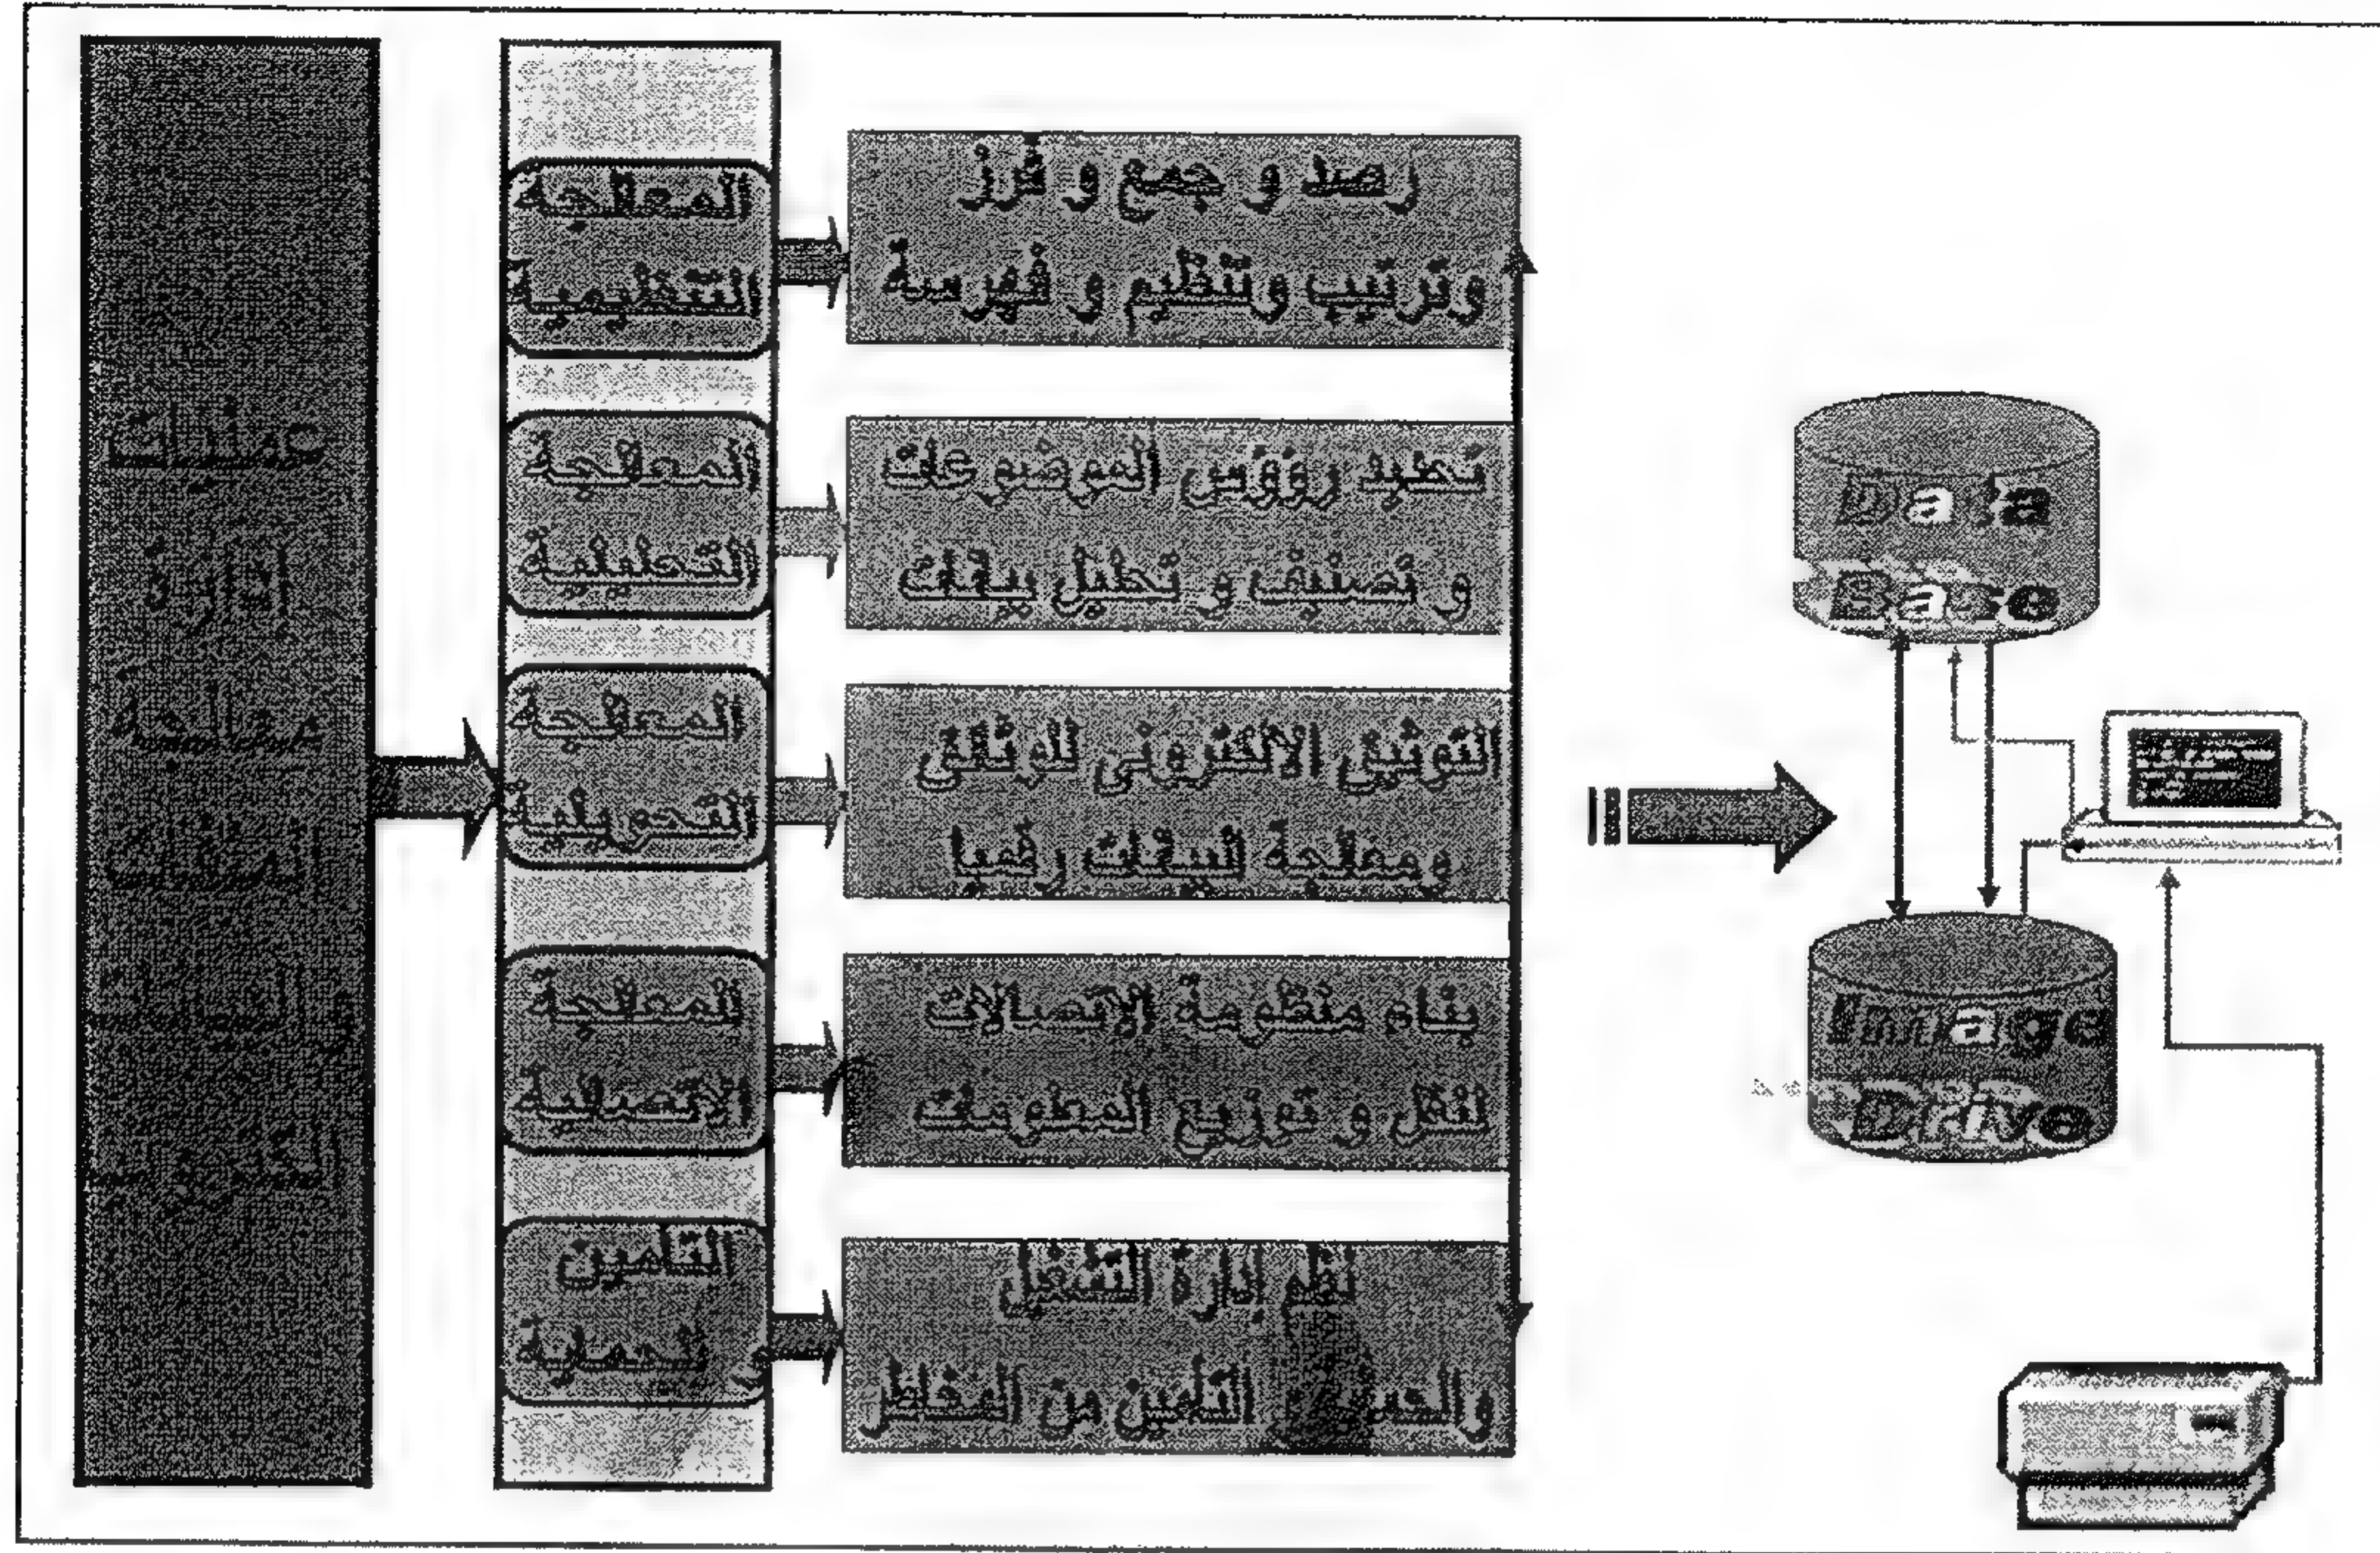 عمليات
إدارة
معالجة
الملفات
و البيانات
المعالجة
التنظيمية
المعالجة
التحليلية
المعالجة
التحويلية
المعالجة
الاتصالية
التأمين
و الحماية
رصد و جمع و فرز
وترتيب وتنظيم و فهرسة
تحديد رؤؤس الموضوعات
و تصنيف و تحليل بيانات
التوثيق الالكترونى للوثائق
ومعالجة البيانات رقميا
بناء منظومة الاتصالات
لنقل و توزيع المعلومات
نظم إدارة التشغيل
التأمين من المخاطر
Data
Base
Image
Drive